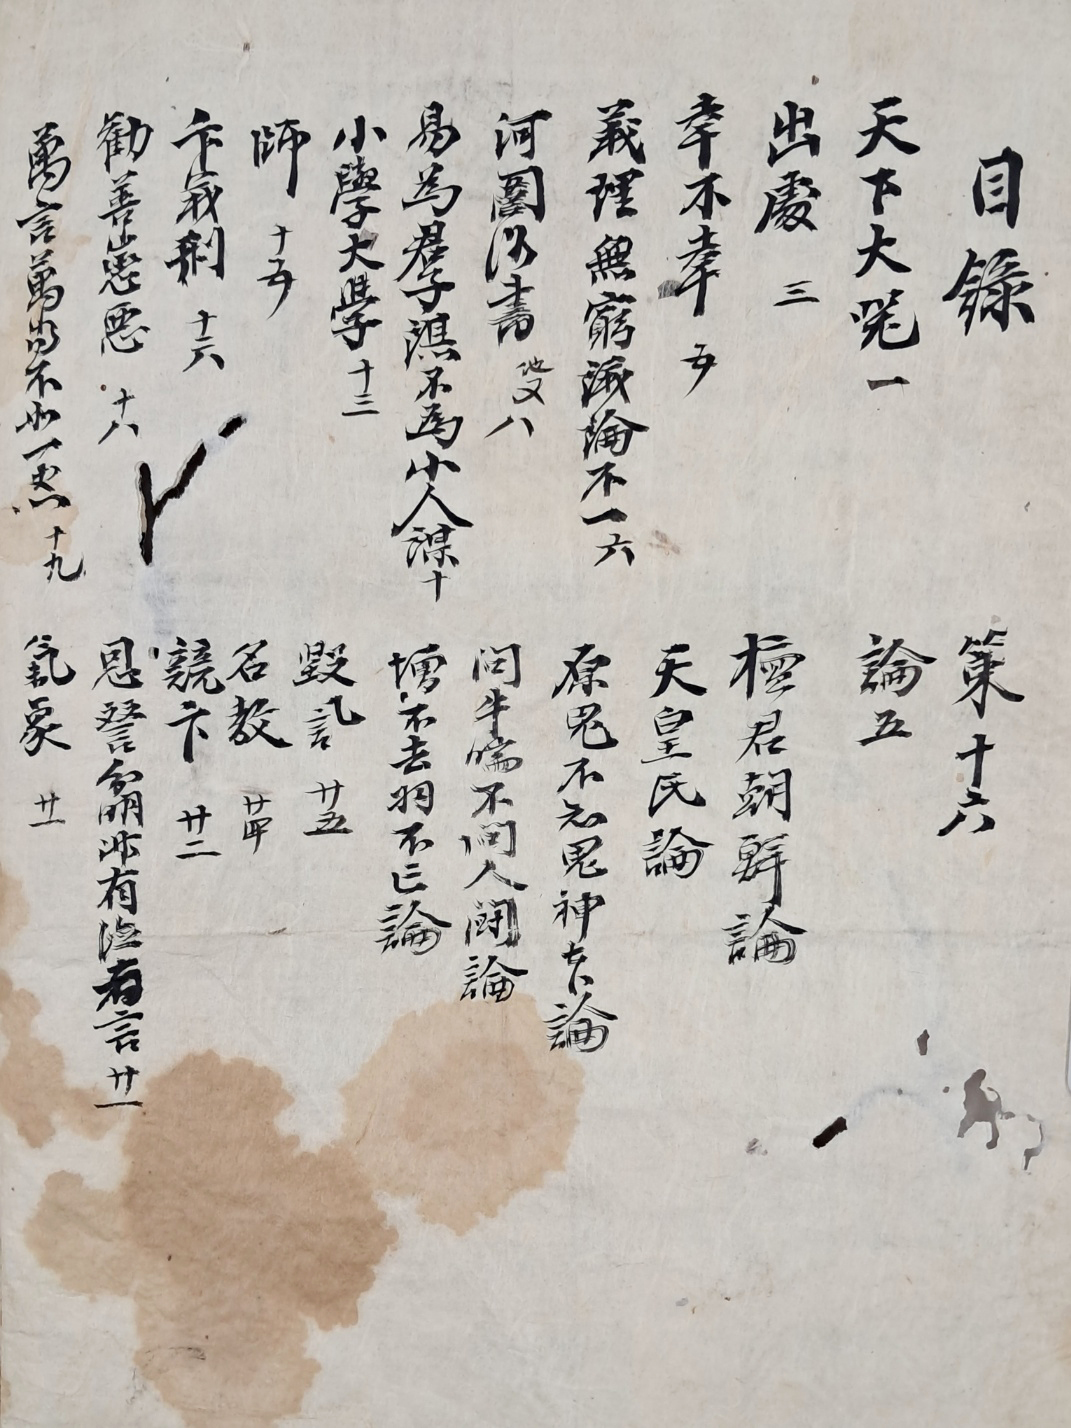 目錄
天下大勢一
出處 三
幸不幸 五
義理無窮議論不一 六
河圖洛書 八
易為君子謀不為小人謀 十
小學大學 十三
師 十五
十六
勸善懲惡 十八
萬言萬當不如一黙 十九
策十六
論五
檀君朝鮮論
天皇氏論
原鬼不知鬼神者論
問牛喘不問人鬪論
增不去羽不亡論
毀言 廿五
名教 廿四
競卞 廿二
恩 有 言 廿一
氣象 廿一